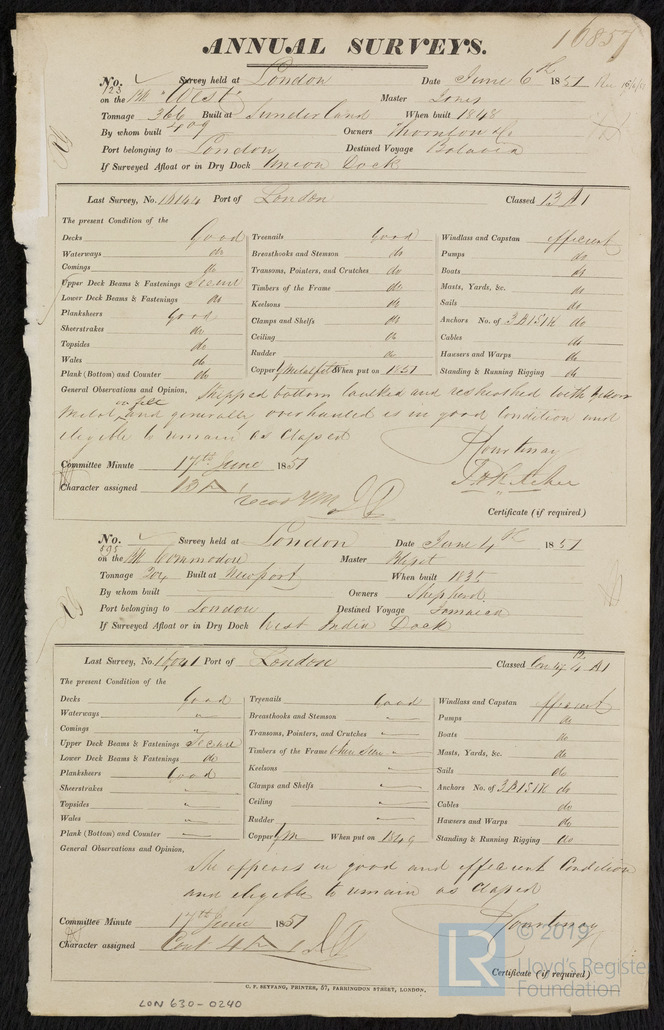 16857
ANNUAL SURVEYS.
No. 123 Survey held at London Date June 6th 1851
on the Bk "West" Master Jones
Tonnage 366 409 Built at Sunderland When built 1848
By whom built Owners Thornton &c
Port belonging to London Destined Voyage Batavia
If Surveyed Afloat or in Dry Dock Union Dock
Last Survey, No. 18144 Port of London Classed 13 A 1
The present Condition of the
Decks Good Treenails Good Windlass and Capstan efficient
Waterways do Breasthooks and Stemson do Pumps do
Comings do Transoms, Pointers, and Crutches do Boats do
Upper Deck Beams & Fastenings Secure Timbers of the Frame do Masts, Yards, &c. do
Lower Deck Beams & Fastenings do Keelsons do Sails do
Planksheers Good Clamps and Shelfs do Anchors No. of 3 B 1 S 1 K do
Sheerstrakes do Ceiling do Cables do
Topsides do Rudder do Hawsers and Warps do
Wales do Copper Y Metal felt When put on 1851 Standing & Running Rigging do
Plank (Bottom) and Counter do
General Observations and Opinion, Stripped bottom caulked and resheathed with Yellow
Metal on felt and generally overhauled is in good condition and
eligible to remain as Classed
Courtenay
Committee Minute 17th June 1851
Character assigned 13 A 1
Certificate (if required)
No. 595 Survey held at London Date June 4th 1851
on the Bk Commodore Master
Tonnage 204 Built at Newport When built 1835
By whom built Owners Shepherd
Port belonging to London Destined Voyage Jamaica
If Surveyed Afloat or in Dry Dock West India Dock
Last Survey, No. 16041 Port of London Classed Cont 4 A 1
The present Condition of the
Decks Good Treenails Good Windlass and Capstan efficient
Waterways " Breasthooks and Stemson Pumps do
Comings " Transoms, Pointers, and Crutches Boats do
Upper Deck Beams & Fastenings Secure Timbers of the Frame when seen Masts, Yards, &c. do
Lower Deck Beams & Fastenings do Keelsons Sails do
Planksheers Good Clamps and Shelfs Anchors No. of 3 B 1 S 1 K do
Sheerstrakes Ceiling Cables do
Topsides Rudder Hawsers and Warps do
Wales Copper YM When put on 1849 Standing & Running Rigging do
Plank (Bottom) and Counter
General Observations and Opinion,
She appears in good and efficient Condition
and eligible to remain as Classed
Courtenay
Committee Minute 17th June 1851
Character assigned Cont 4 A 1
Certificate (if required)
C. F. SEYFANG, PRINTER, 57, FARRINGDON STREET, LONDON.
LON 630-0240
LR © 2019
Lloyd's Register
Foundation